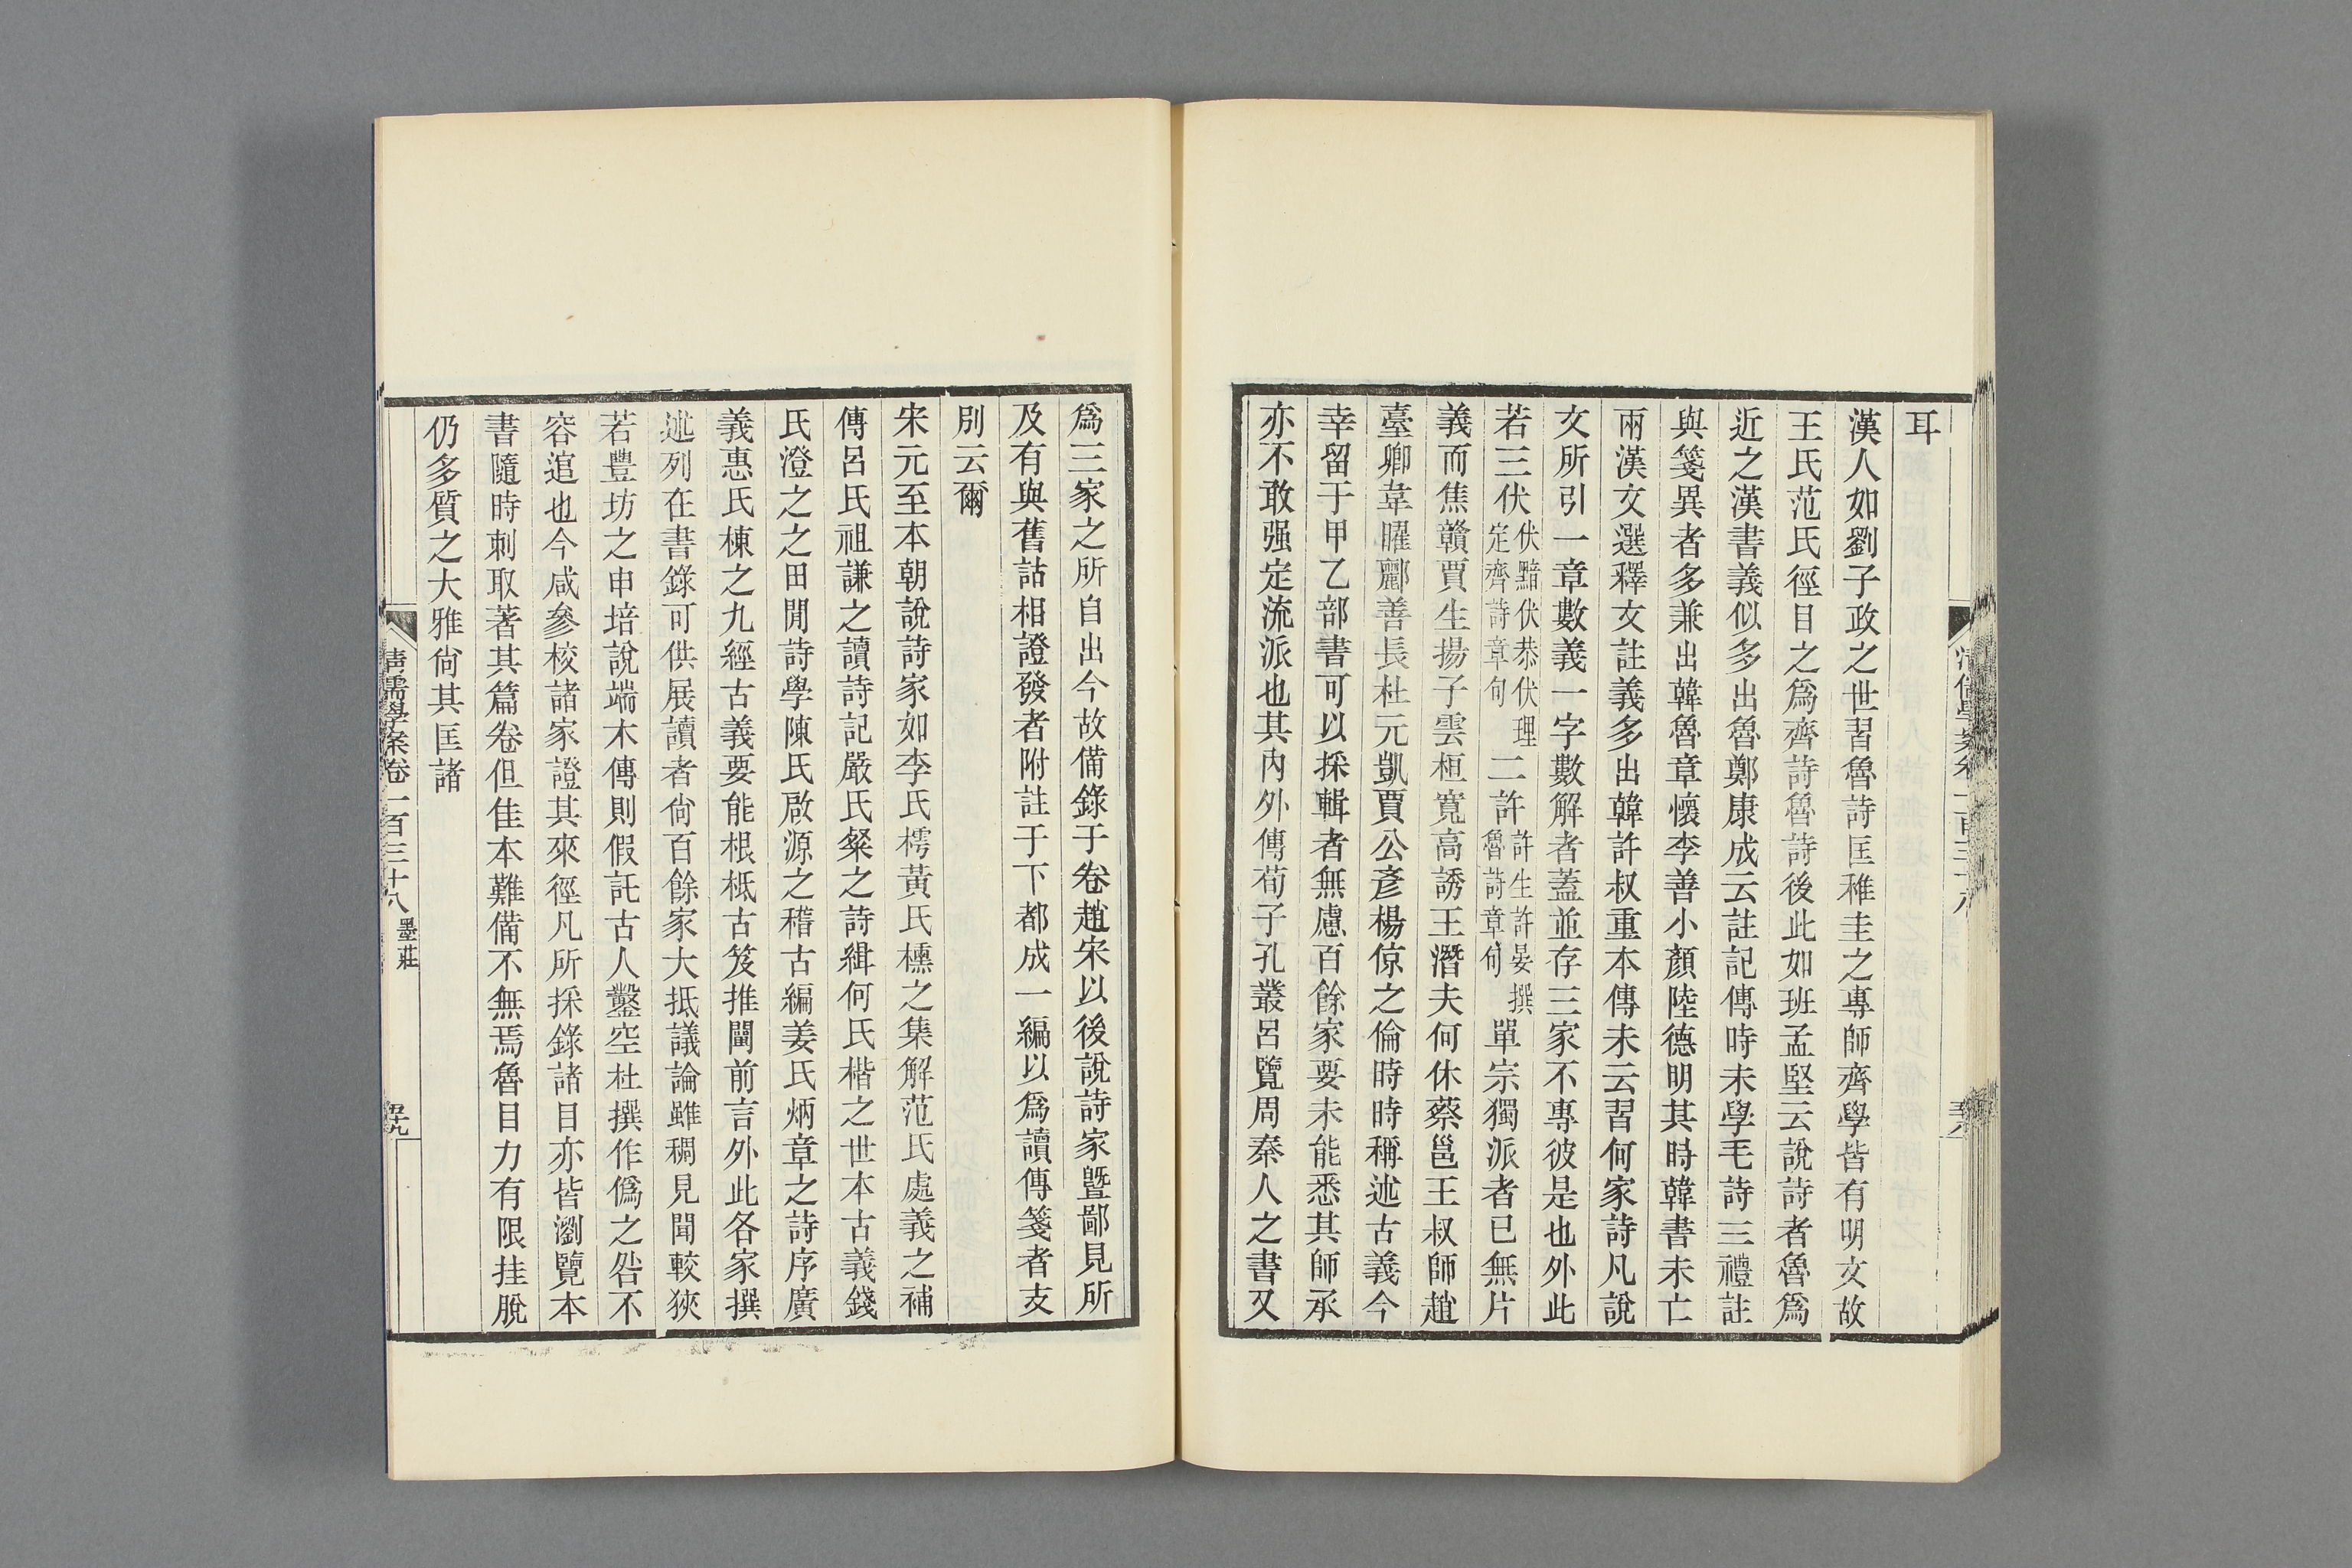 耳
漢人如劉子政之世習魯詩匡稚圭之專師齊學皆有明文故
王氏范氏徑目之爲齊詩魯詩後此如班孟堅云說詩者魯爲
近之漢書義似多出魯鄭康成云註記傳時未學毛詩三禮註
與箋異者多兼出韓魯章懷李善小顏陸德明其時韓書未亡
兩漢文選釋文註義多出韓許叔重本傳未云習何家詩凡說
文所引一章數義一字數解者蓋並存三家不專彼是也外此
若三伏伏黯伏恭伏理定齊詩章句二許許生許晏撰魯詩章句單宗獨派者已無片
義而焦贛賈生揚子雲桓寬高誘王潛夫何休蔡邕王叔師趙
臺卿韋曜酈善長杜元凱賈公彥楊倞之倫時時稱述古義今
幸留于甲乙部書可以採輯者無慮百餘家要未能悉其師承
亦不敢强定流派也其內外傳荀子孔叢呂覽周秦人之書又
爲三家之所自出今故備錄于卷趙宋以後說詩家曁鄙見所
及有與舊詁相證發者附註于下都成一編以爲讀傳箋者支
別云爾
宋元至本朝說詩家如李氏樗黃氏櫄之集解范氏處義之補
傳呂氏祖謙之讀詩記嚴氏粲之詩緝何氏楷之世本古義錢
氏澄之之田閒詩學陳氏啟源之稽古編姜氏炳章之詩序廣
義惠氏棟之九經古義要能根柢古笈推闡前言外此各家撰
述列在書錄可供展讀者尙百餘家大抵議論雖稠見聞較狹
若豐坊之申培說端木傳則假託古人鑿空杜撰作僞之咎不
容逭也今咸參校諸家證其來徑凡所採錄諸目亦皆瀏覽本
書隨時刺取著其篇卷但佳本難備不無焉魯目力有限挂脫
仍多質之大雅尙其匡諸
清儒學案卷一百三十八 墨莊